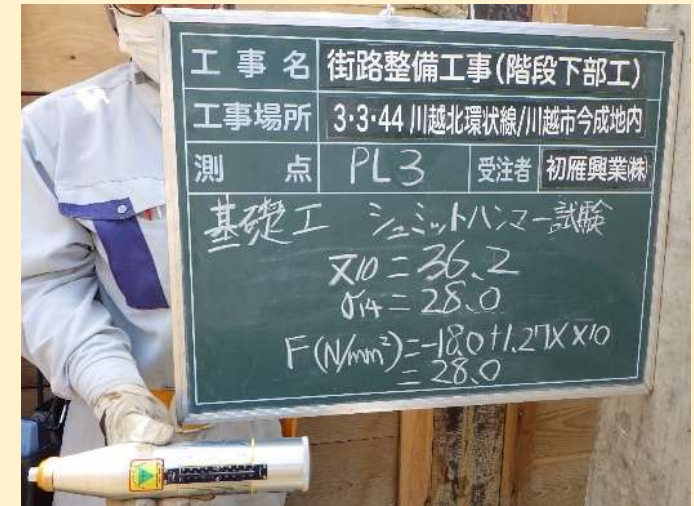 工事名 街路整備工事(階段下部工)
工事場所 3・3・44 川越北環状線/川越市今成地内
測点 PL3 受注者 初雁興業㈱
基礎工 シュミットハンマー試験
x̄10=36.2
σ14=28.0
F(N/mm²)=-18.0+1.27×x10
=28.0